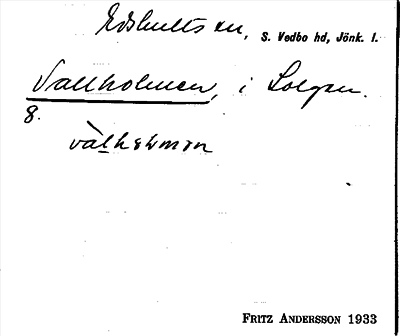 Edshults sn, S. Vedbo hd, Jönk. l.
Vallholmen, i Solgen.
8.
FRITZ ANDERSSON 1933